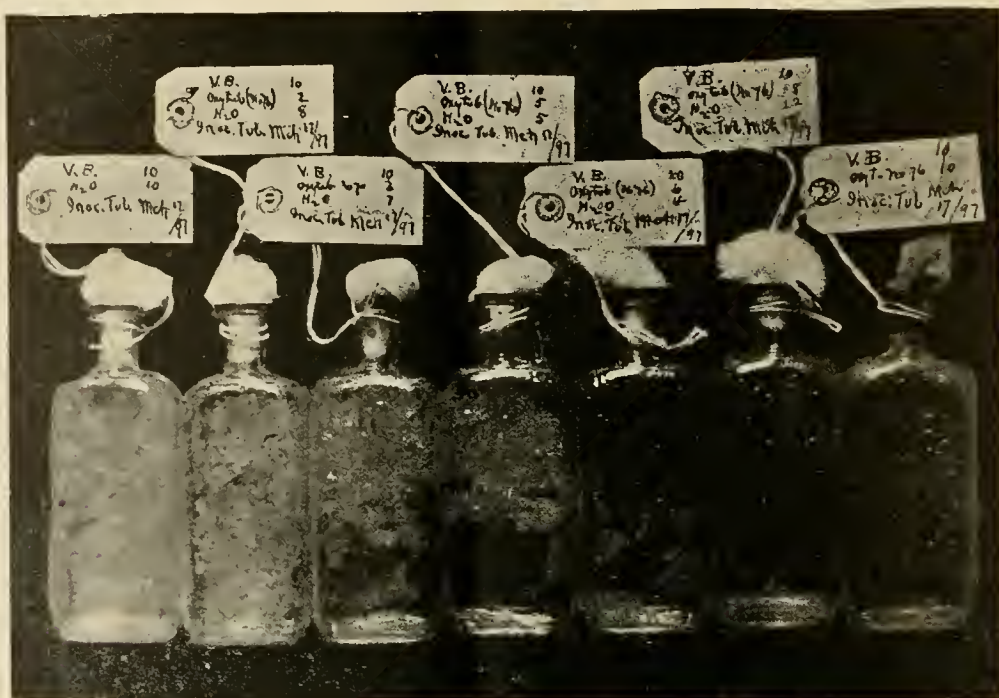 V. B. 10
H2O 10
Inoc. Tub. Mch 17
/97
V. B. 10
Oxytub (No 76) 2
H2O 8
Inoc. Tub. Mch 17
/97
V. B. 10
Oxytub
H2O 7
Inoc. Tub Mch 17
/97
V. B. 10
Oxytub (No 76) 5
H2O 5
Inoc. Tub. Mch 17
/97
V. B.
Oxytub (No 76) 6
H2O 4
Inoc. Tub. Mch 17
/97
V. B. 10
Oxytub (No 76)
H2O
Inoc. Tub. Mch
/97
V. B. 10
Oxyt- No 76 10
Inoc. Tub Mch
17/97